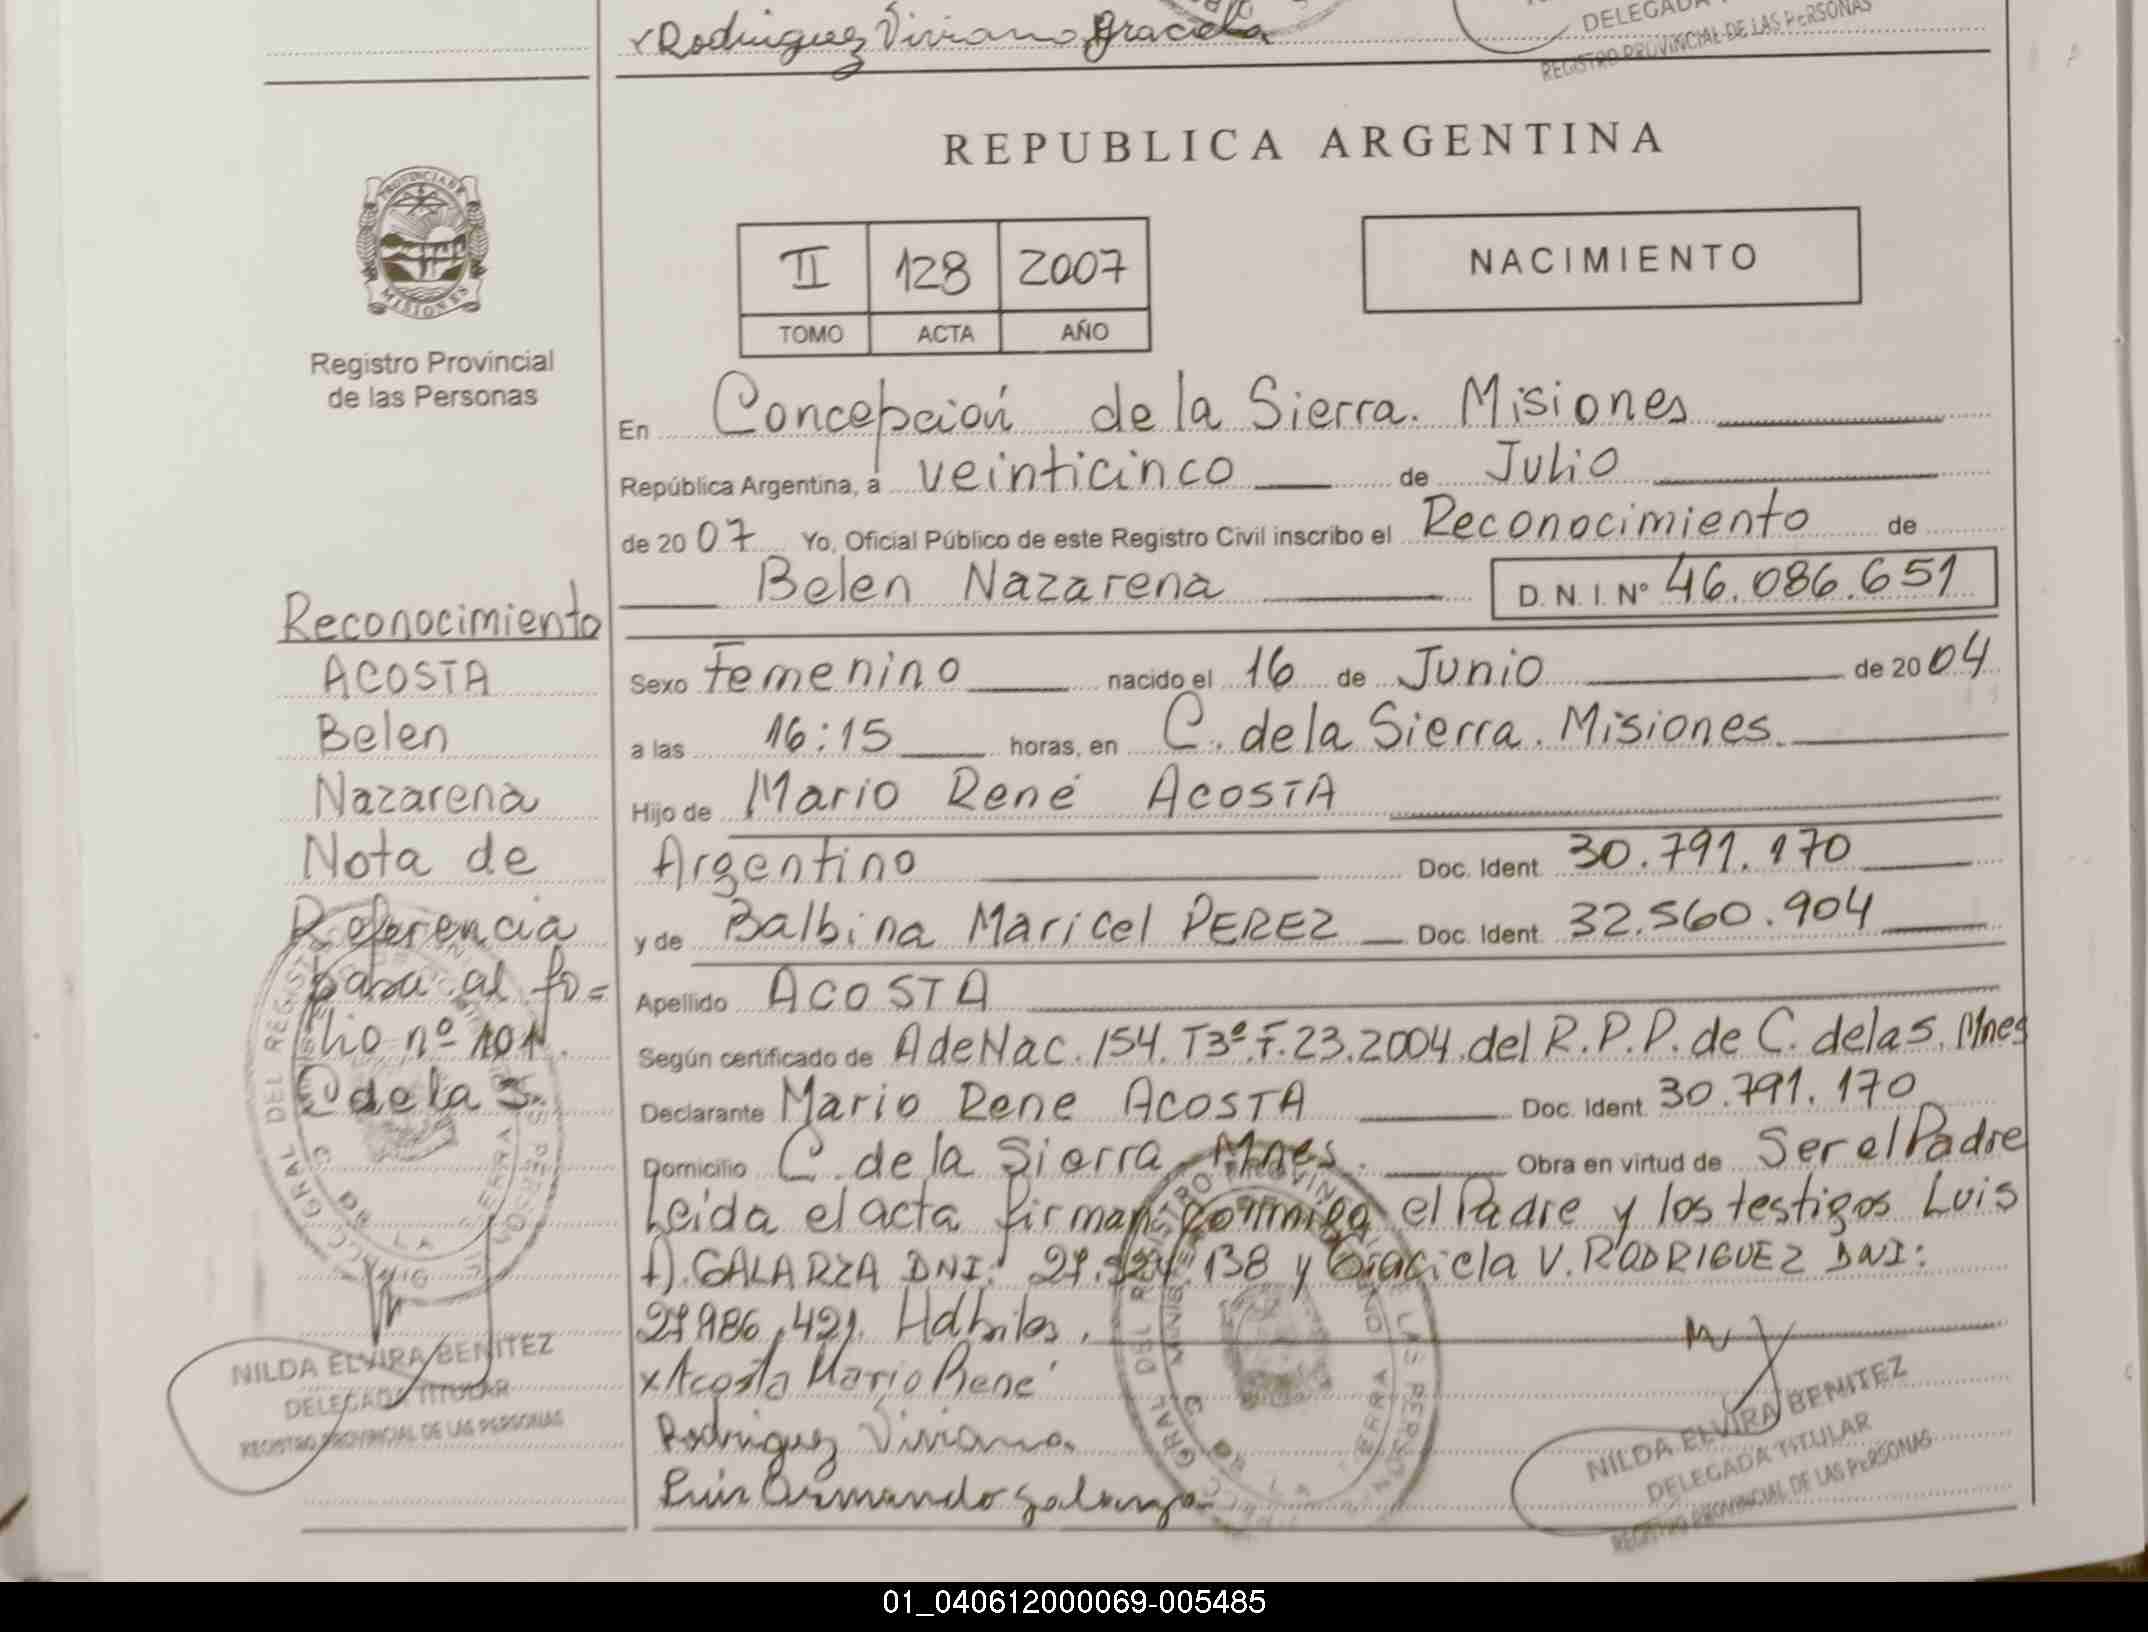 x Rodriguez Viviana Graciela
DELEGADA
REGISTRO PROVINCIAL DE LAS PERSONAS
REPUBLICA ARGENTINA
PROVINCIA DE
MISIONES
Registro Provincial
de las Personas
II 128 2007
TOMO ACTA AÑO
NACIMIENTO
En Concepción de la Sierra. Misiones
República Argentina, a veinticinco de Julio
de 2007 Yo, Oficial Público de este Registro Civil inscribo el Reconocimiento de
Belen Nazarena D.N.I. Nº 46.086.651
Sexo Femenino nacido el 16 de Junio de 2004
a las 16:15 horas, en C. de la Sierra. Misiones.
Hijo de Mario René ACOSTA
Argentino Doc. Ident. 30.791.170
y de Balbina Maricel PEREZ Doc. Ident. 32.560.904
Apellido ACOSTA
Según certificado de AdeNac. 154. T3º. F. 23. 2004. del R.P.P. de C. de la S. Mnes
Declarante Mario Rene ACOSTA Doc. Ident. 30.791.170
Domicilio C. de la Sierra Mnes. Obra en virtud de Ser el Padre
Leida el acta firman conmigo el Padre y los testigos Luis
A. GALARZA DNI: 138 y Graciela V. RODRIGUEZ DNI:
421. Hábiles.
x Acosta Mario René
Rodriguez Viviana.
Luis Armando Galarza
NILDA ELVIRA BENITEZ
DELEGADA TITULAR
REGISTRO PROVINCIAL DE LAS PERSONAS
Reconocimiento
ACOSTA
Belen
Nazarena
Nota de
Referencia
pasa al fo=
lio nº 101.
C de la S.
NILDA ELVIRA BENITEZ
DELEGADA TITULAR
REGISTRO PROVINCIAL DE LAS PERSONAS
01_040612000069-005485